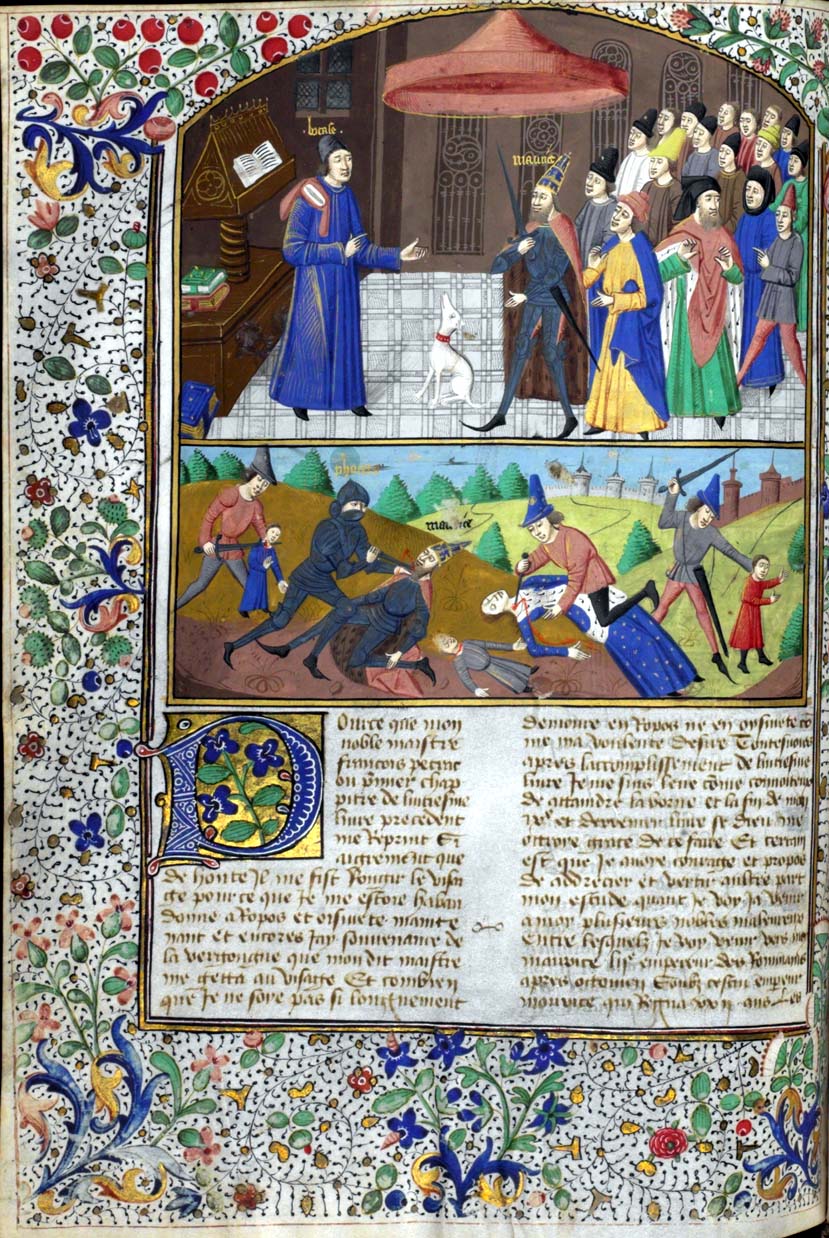 bocase
maurice
phocas
maurice
Pource que mon
noble maistre
francois petrac
ou premier chap
pitre de luitiesme
livre precedent
me reprint si
aigrement que
de honte Il me fist Rougir le visa
ge pour ce que Je me estoie haban
donne a Repos et oisivete mainte
nant et encores Jay souvenance de
la vergongne que mon dit maistre
me getta au visaige Et combien
que Je ne soye pas si longuement
demoure en Repos ne en oysivete co
me ma voulente desire Toutesvoies
apres laccomplissement de luitiesme
livre Je me suis leve come convoiteux
de attaindre la borne et la fin de mon
et derrenier livre se dieu me
ottroye grace de ce faire Et certain
est que Je avoye couraige et propos
de addrecier et vertir aultre part
mon estude quant Je voy Ja venir
a moy plusieurs nobles maleureux
Entre lesquelz Je voy venir vers
maurice empereur des Rommains
apres ottovien Soubz cestui empereur
maurice qui Regna ans Les